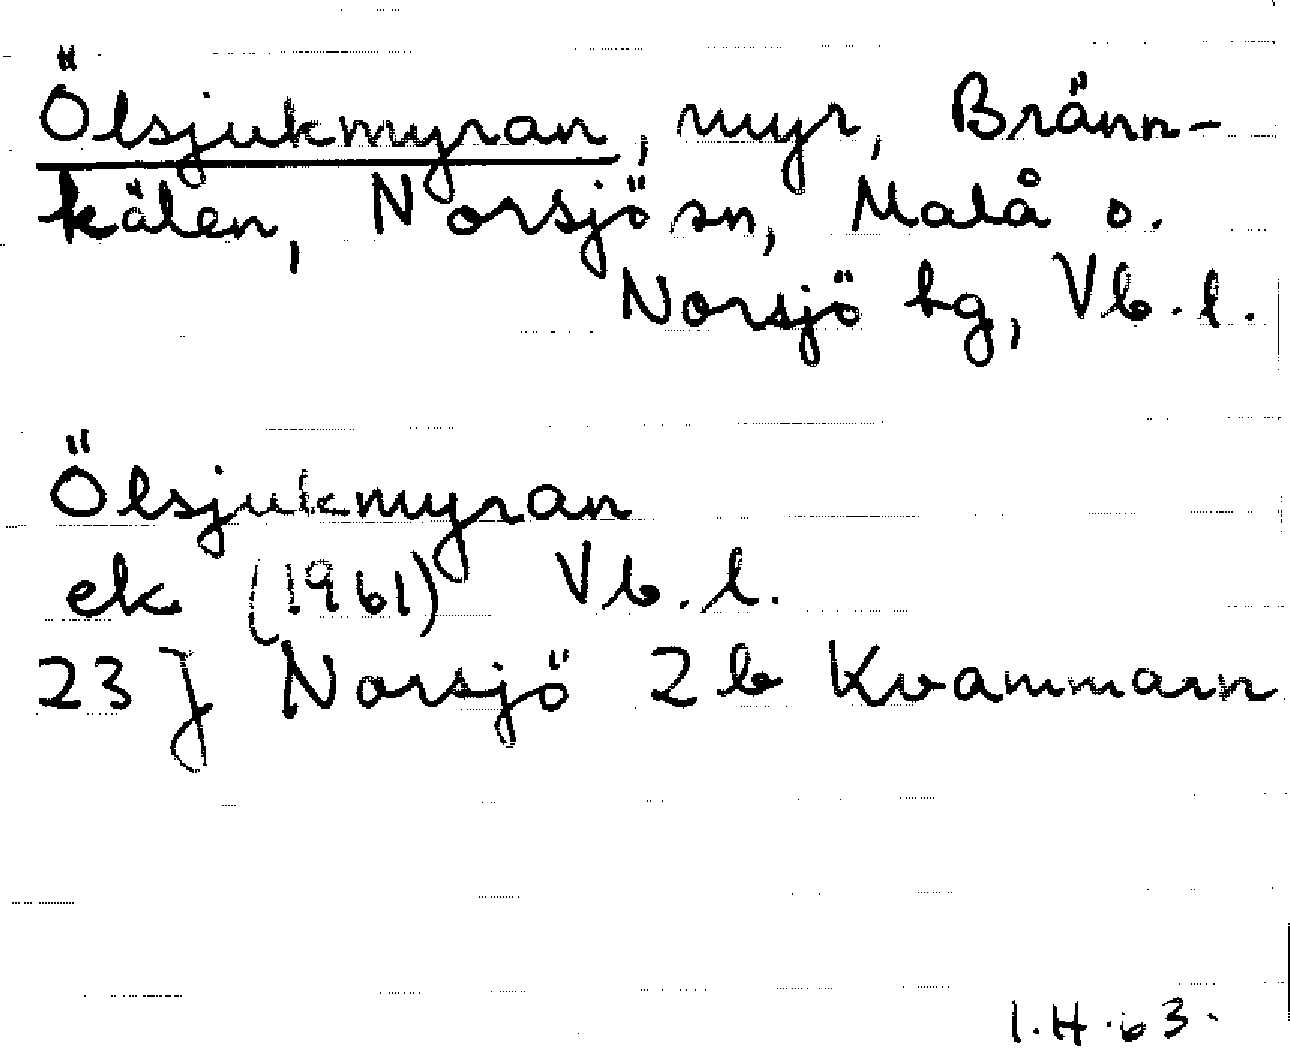 Ölsjukmyran, myr, Bränn-
kälen, Norsjö sn, Malå o.
Norsjö tg, Vb.l.
Ölsjukmyran
ek (1961) Vb.l.
23 J Norsjö 2b Kvammarn
I.H.63.